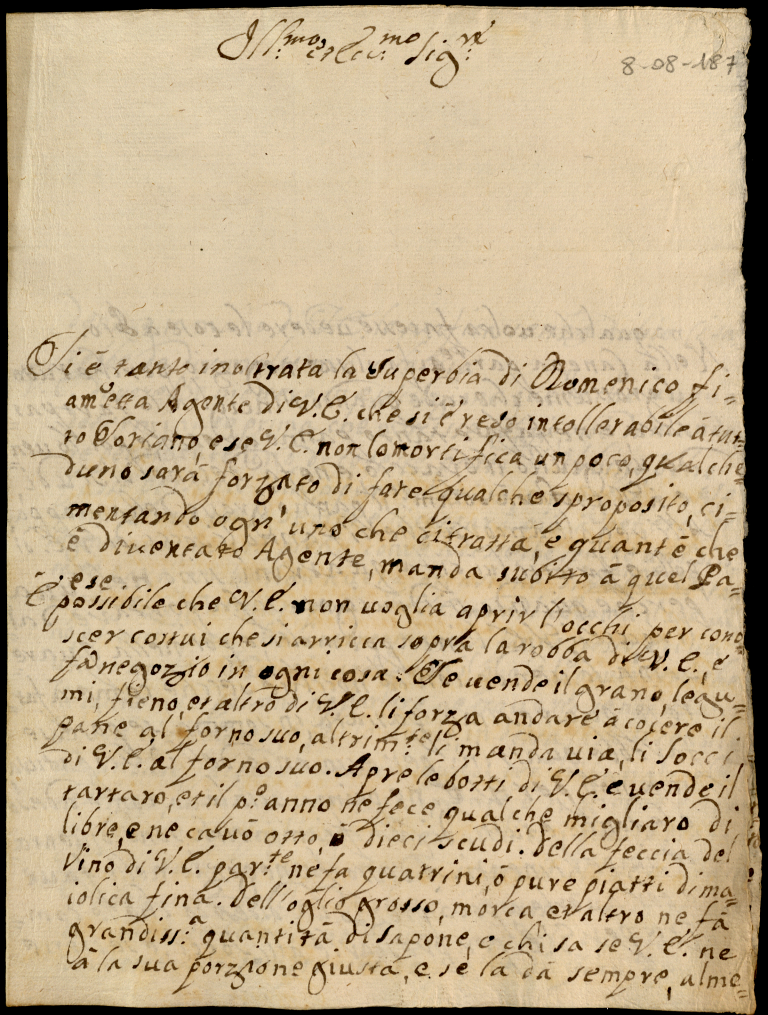 Ill:mo et Ecc:mo Sig:re
8-08-187
Si è tanto inoltrata la Superbia di Domenico fi=
ametta Agente di V.E. che si è reso intollerabile à tut=
to Soriano, e se V.E. non lo mortifica un poco, qualche=
duno sarà forzato di fare qualche sproposito, ci=
mentando ogn'uno che ci tratta, e quant'è che
è diventato Agente, manda subito à quel Pa=
ese
È possibile che V.E. non voglia aprir l'occhi per cono=
scer costui che si arricca sopra la robba di V.E., e
fà negozio in ogni cosa. Se vende il grano, legu=
mi, fieno, et altro di V.E. li forza andare à cocere il
pane al forno suo, altrim:te li manda via, li Socci
di V.E. al forno suo. Apre le botti di V.E. e vende il
tartaro, et il p:o anno ne fece qualche migliaro di
libre, e ne cavò otto, ò dieci scudi. Della feccia del
Vino di V.E. par:te ne fa quattrini, ò pure piatti di ma=
iolica fina. Dell'oglio grosso, morca, et altro ne fà
grandiss:a quantità di sapone, e chi sa se V.E. ne
à la sua porzione giusta, e se la dà sempre, alme=